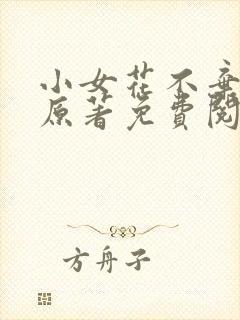 小女花不弃
原著免費閱
方舟子